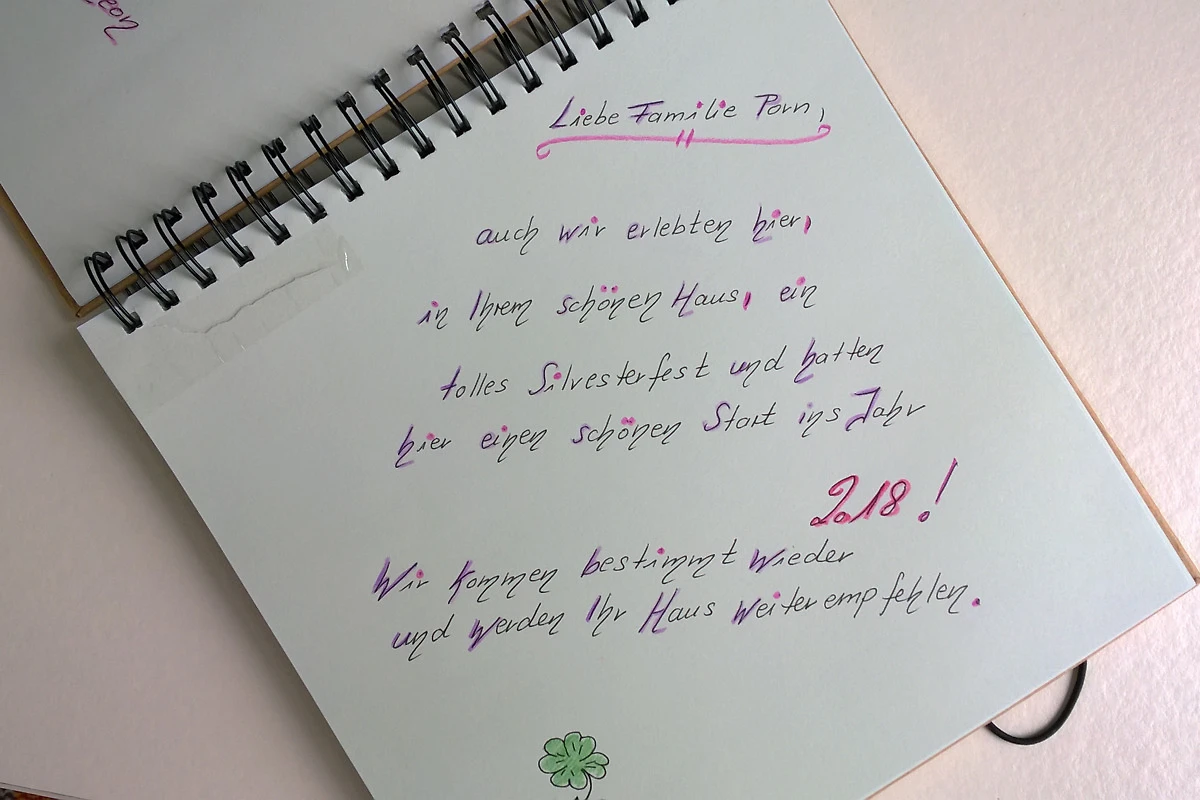 Leon
Liebe Familie Porn,
auch wir erlebten hier,
in Ihrem schönen Haus, ein
tolles Silvesterfest und hatten
hier einen schönen Start ins Jahr
2018!
Wir kommen bestimmt wieder
und werden Ihr Haus weiterempfehlen.